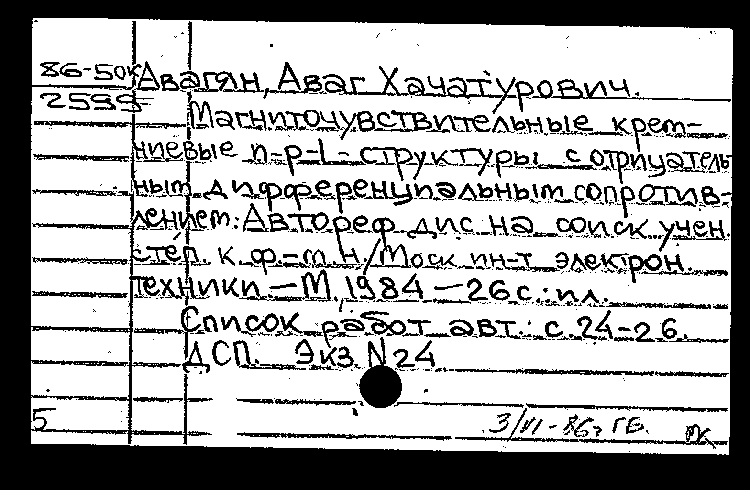 86-50к Авагян, Аваг Хачатурович.
2599 Магниточувствительные крем-
ниевые п-р-i-структуры с отрицатель
ным дифференциальным сопротив-
лением: Автореф дис на соиск учен.
степ. к.ф.-т.н/Моск ин-т электрон.
техники — М, 1984 — 26с.: ил.
Список работ авт.: с.24-26.
ДСП. Экз N 24
5 3/VI-86г ГБ.